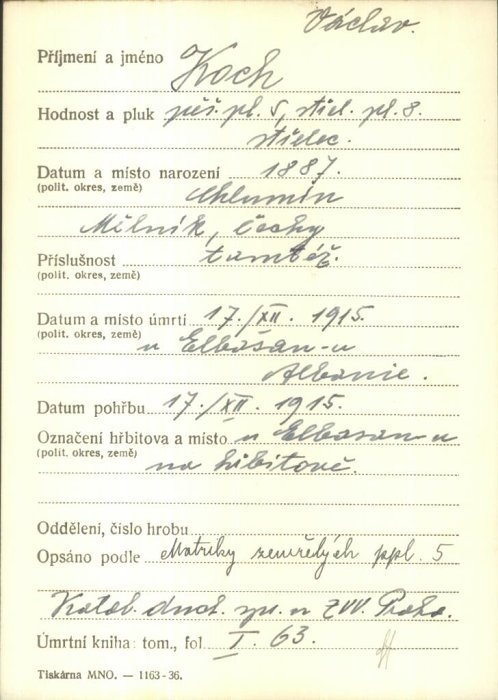 Václav.
Příjmení a jméno Koch
Hodnost a pluk pěš. pl. 5, střel. pl. 8.
střelec.
Datum a místo narození 1887.
(polit. okres, země) Chlumín
Mělník, Čechy
Příslušnost tamtéž.
(polit. okres, země)
Datum a místo úmrtí 17./XII. 1915.
(polit. okres, země) u Elbašan-u
Albanie.
Datum pohřbu 17./XII. 1915.
Označení hřbitova a místo u Elbasan-u
(polit. okres, země) na hřbitově.
Oddělení, číslo hrobu
Opsáno podle Matriky zemřelých ppl. 5
Katol. duch. spr. u ZVV. Praha.
Úmrtní kniha: tom., fol. I. 63.
Tiskárna MNO. — 1163-36.